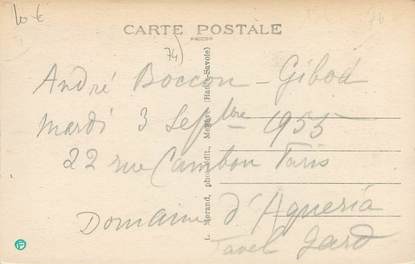 10 €
76
CARTE POSTALE
74)
André Boccon-Gibod
mardi 3 Septbre 1955
22 rue Cambon Paris
Domaine d'Aqueria
Tavel Gard
L. Morand, phot-édit., Megève (Haute-Savoie)